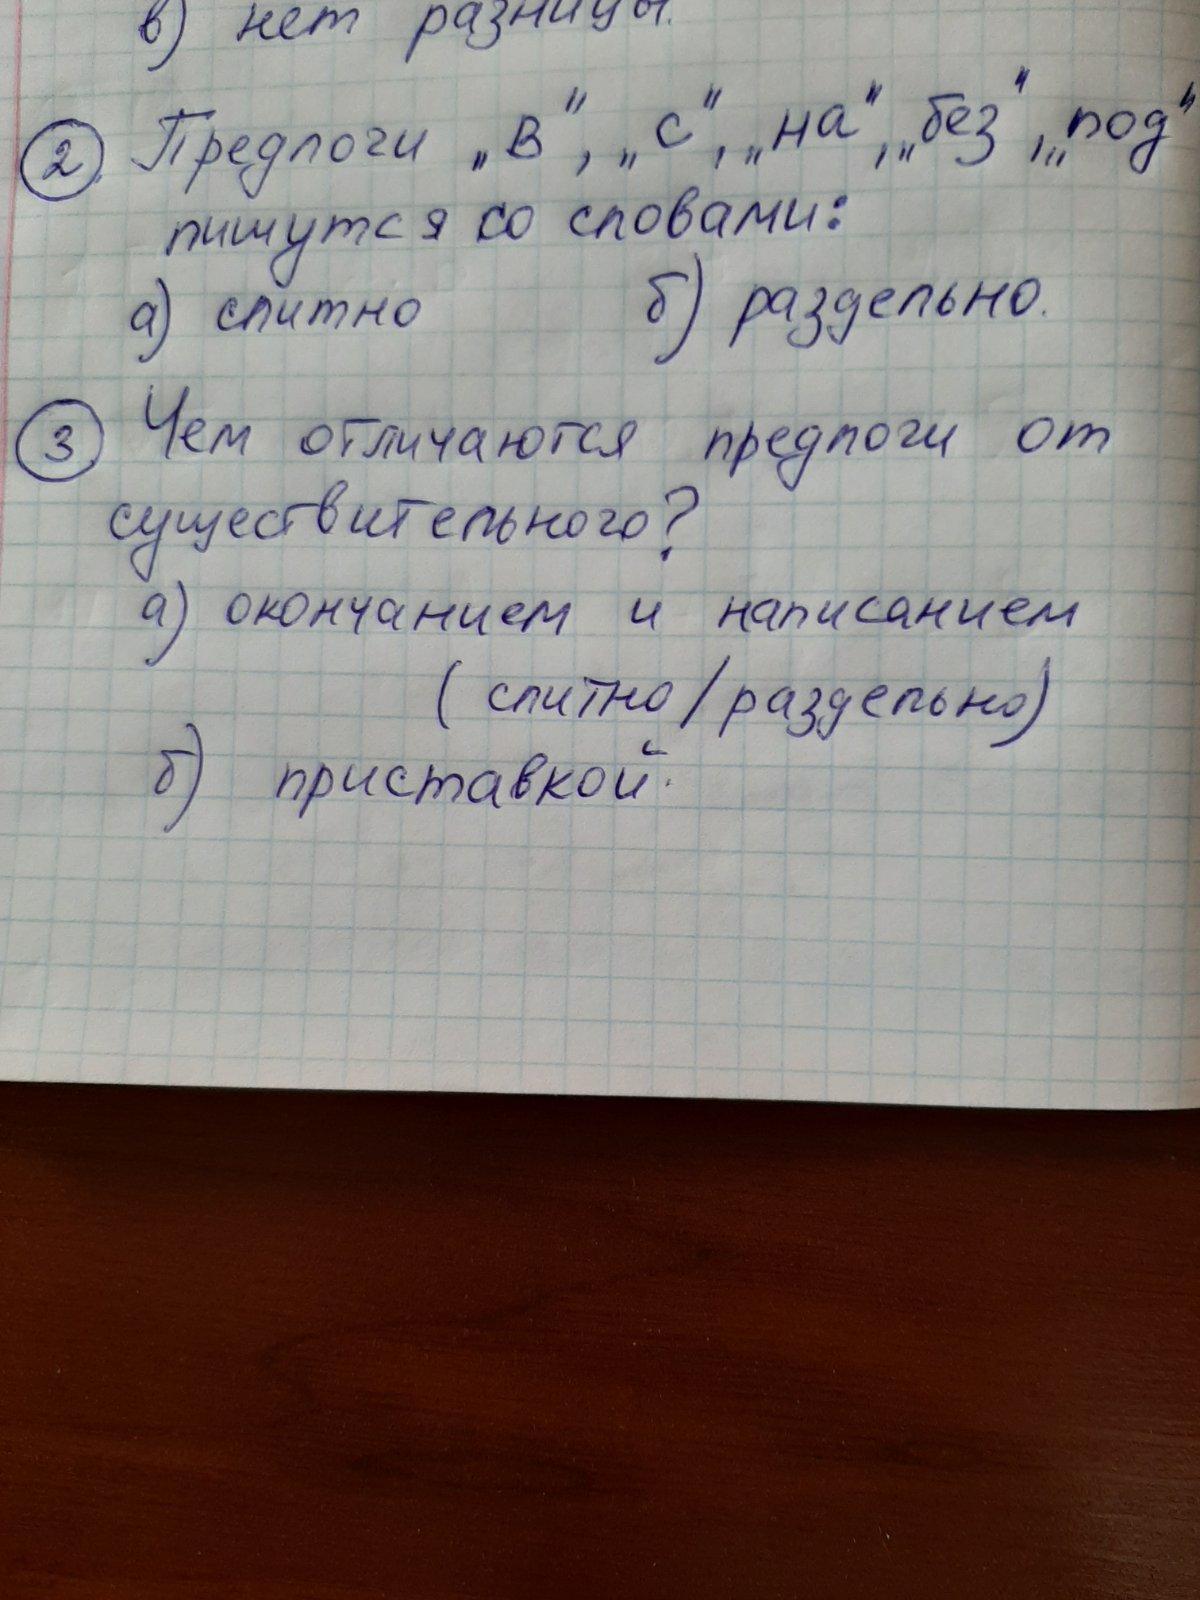 в) нет разницы.
2. Предлоги „в", „с", „на", „без", „под"
пишутся со словами:
а) слитно б) раздельно.
3 Чем отличаются предлоги от
существительного?
а) окончанием и написанием
(слитно/раздельно)
б) приставкой.